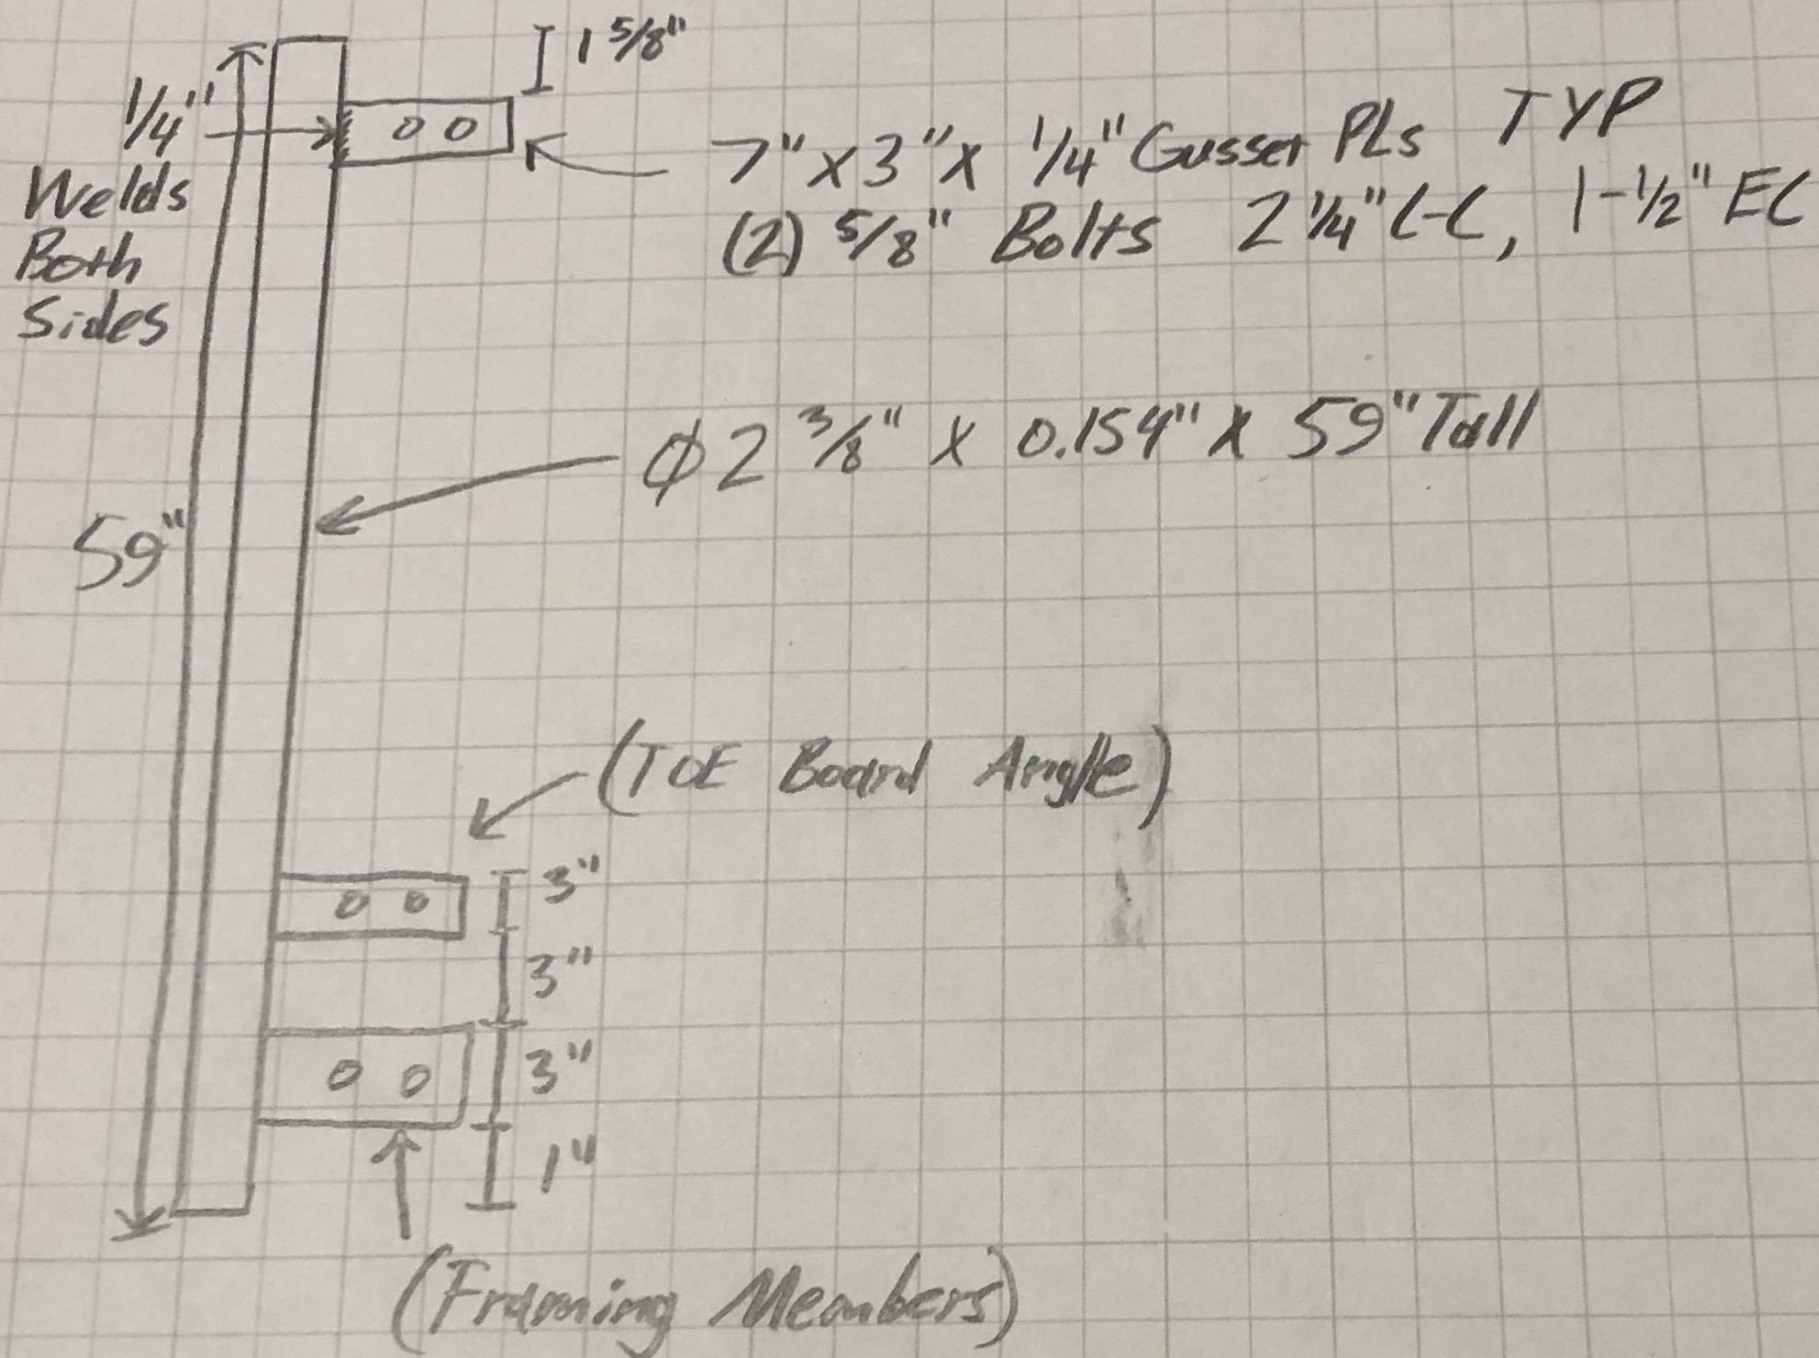 1 5/8"
1/4"
Welds
Both
Sides
7" x 3" x 1/4" Gusset PLs TYP
(2) 5/8" Bolts 2 1/4" C-C, 1-1/2" EC
Ø2 3/8" x 0.154" x 59" Tall
59"
(TOE Board Angle)
3"
3"
3"
1"
(Framing Members)